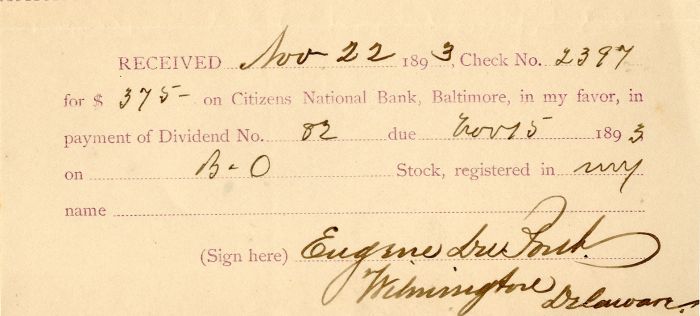 RECEIVED Nov 22 1893, Check No. 2397
for $ 375- on Citizens National Bank, Baltimore, in my favor, in
payment of Dividend No. 82 due Nov 15 1893
on B-O Stock, registered in my
name
(Sign here) Eugene Du Pont.
Wilmington Delaware.